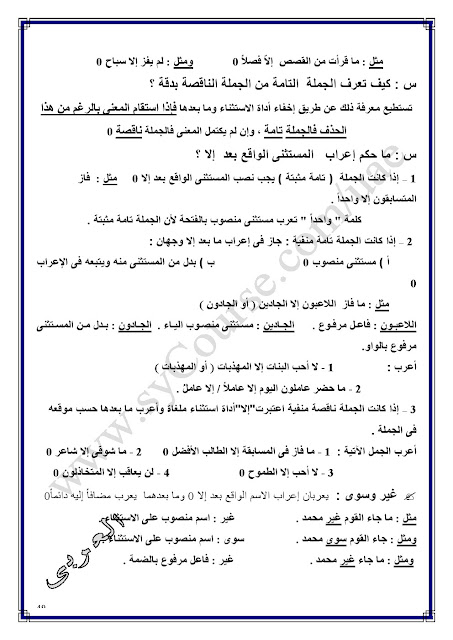 مثل : ما قرأت من القصص إلاّ فصلاً 0 ومثل : لم يفز إلا سباح 0
س : كيف تعرف الجملة التامة من الجملة الناقصة بدقة ؟
تستطيع معرفة ذلك عن طريق إخفاء أداة الاستثناء وما بعدها فإذا استقام المعنى بالرغم من هذا
الحذف فالجملة تامة ، وإن لم يكتمل المعنى فالجملة ناقصة 0
س : ما حكم إعراب المستثنى الواقع بعد إلا ؟
1 – إذا كانت الجملة ( تامة مثبتة ) يجب نصب المستثنى الواقع بعد إلا 0 مثل : فاز
المتسابقون إلا واحداً .
كلمة " واحداً " تعرب مستثنى منصوب بالفتحة لأن الجملة تامة مثبتة .
2 – إذا كانت الجملة تامة منفية : جاز في إعراب ما بعد إلا وجهان :
أ ) مستثنى منصوب 0 ب ) بدل من المستثنى منه ويتبعه في الإعراب
0
مثل : ما فاز اللاعبون إلا الجادين ( أو الجادون )
اللاعبون : فاعل مرفوع . الجادين : مستثنى منصوب الياء . الجادون : بدل من المستثنى
مرفوع بالواو.
أعرب : 1 - لا أحب البنات إلا المهذبات ( أو المهذبات )
2 – ما حضر عاملون اليوم إلا عاملاً / إلا عاملٌ .
3 – إذا كانت الجملة ناقصة منفية اعتبرت"إلا"أداة استثناء ملغاة وأعرب ما بعدها حسب موقعه
في الجملة .
أعرب الجمل الآتية : 1 – ما فاز في المسابقة إلا الطالب الأفضل 0 2 – ما شوقي إلا شاعر 0
3 – لا أحب إلا الطموح 0 4 – لن يعاقب إلا المتخاذلون 0
غير وسوى : يعربان إعراب الاسم الواقع بعد إلا 0 وما بعدهما يعرب مضافاً إليه دائماً0
مثل : ما جاء القوم غير محمد . غير : اسم منصوب على الاستثناء.
ومثل : جاء القوم سوى محمد . سوى : اسم منصوب على الاستثناء .
ومثل : ما جاء غير محمد . غير : فاعل مرفوع بالضمة .
www.syCourse.com/uae